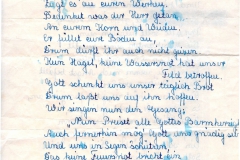 legt es an euren Werken,
Bedenket was der Herr getan,
An eurem Korn und Weiden.
Er hütet eure Böden an,
Drum dürft ihr auch nicht geizen
Kein Hagel, keine Wassersnot hat unser
Feld betroffen.
Gott schenkt uns unser täglich Brot
Drum laßt uns auf ihn hoffen.
Wir singen nun den Gesang:
"Nun Preist alle Gottes Barmherzigkeit
Auch fernerhin mög Gott uns gnädig sein
Und uns in Segen schützen,
Das keine Feuersnot bricht ein